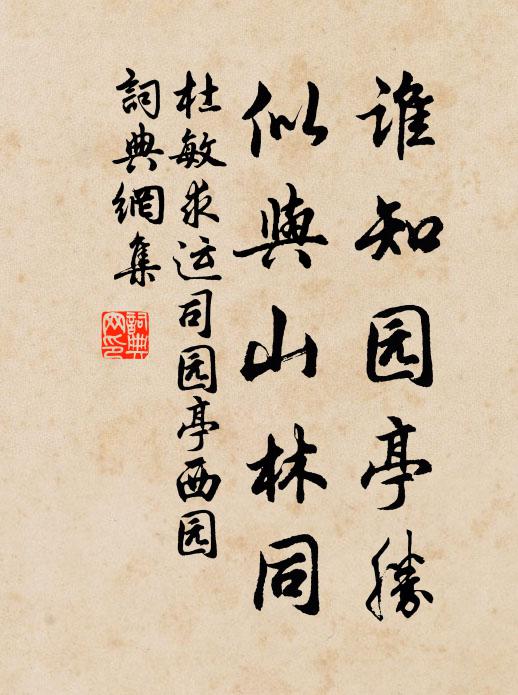 谁知园亭勝
似與山林同
杜敏求运司园亭西园
詞典網集
詞典網印